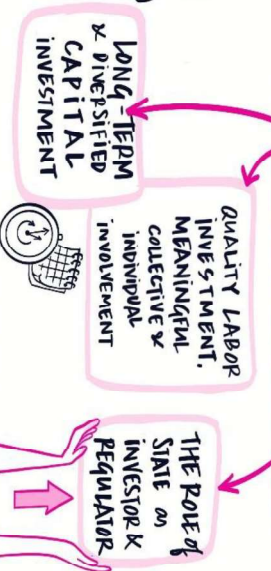 LONG-TERM
& DIVERSIFIED
CAPITAL
INVESTMENT
QUALITY LABOR
INVESTMENT,
MEANINGFUL
COLLECTIVE &
INDIVIDUAL
INVOLVEMENT
THE ROLE of
STATE as
INVESTOR &
REGULATOR